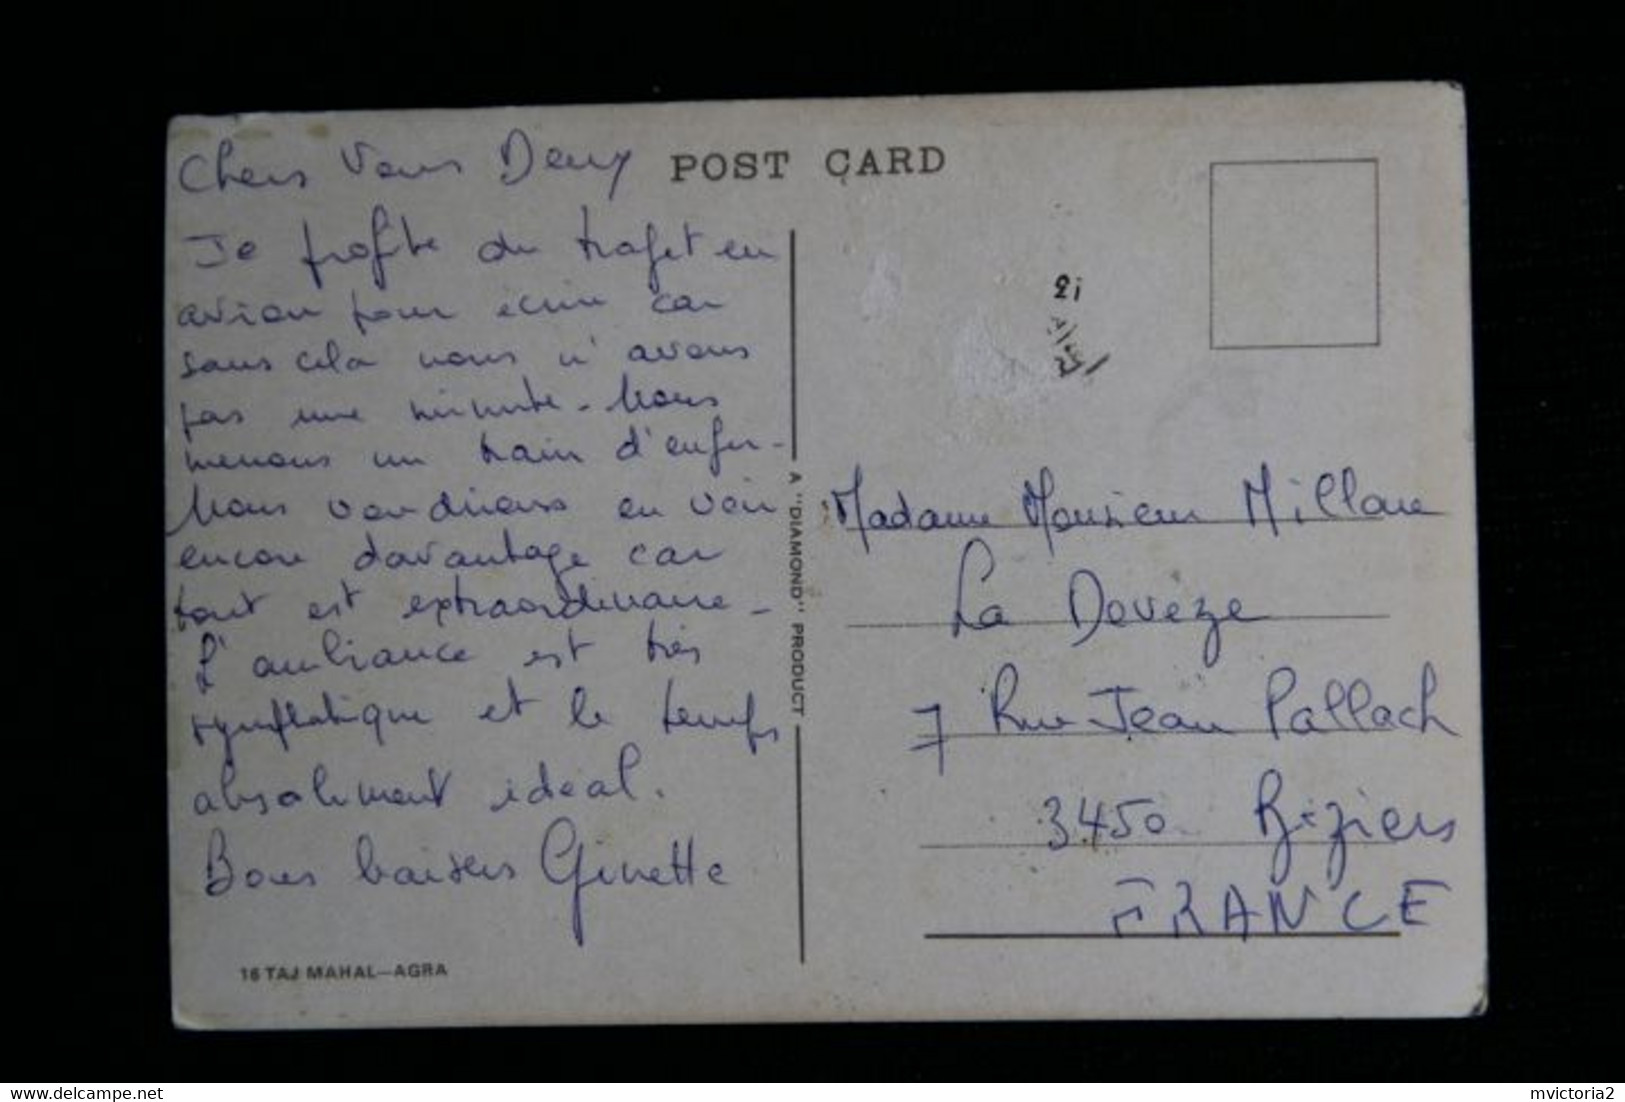 Chers Vous Deux
Je profite du trajet en
avion pour écrire car
sans cela nous n'avons
pas une minute - Nous
menons un train d'enfer -
Nous voudrions en voir
encore davantage car
tout est extraordinaire -
L'ambiance est très
sympathique et le temps
absolument idéal.
Bons baisers Ginette
16 TAJ MAHAL—AGRA
POST CARD
A "DIAMOND" PRODUCT
Madame Monsieur Millau
La Devèze
7 Rue Jean Pallach
3450 Béziers
FRANCE
delcampe.net
mvictoria2